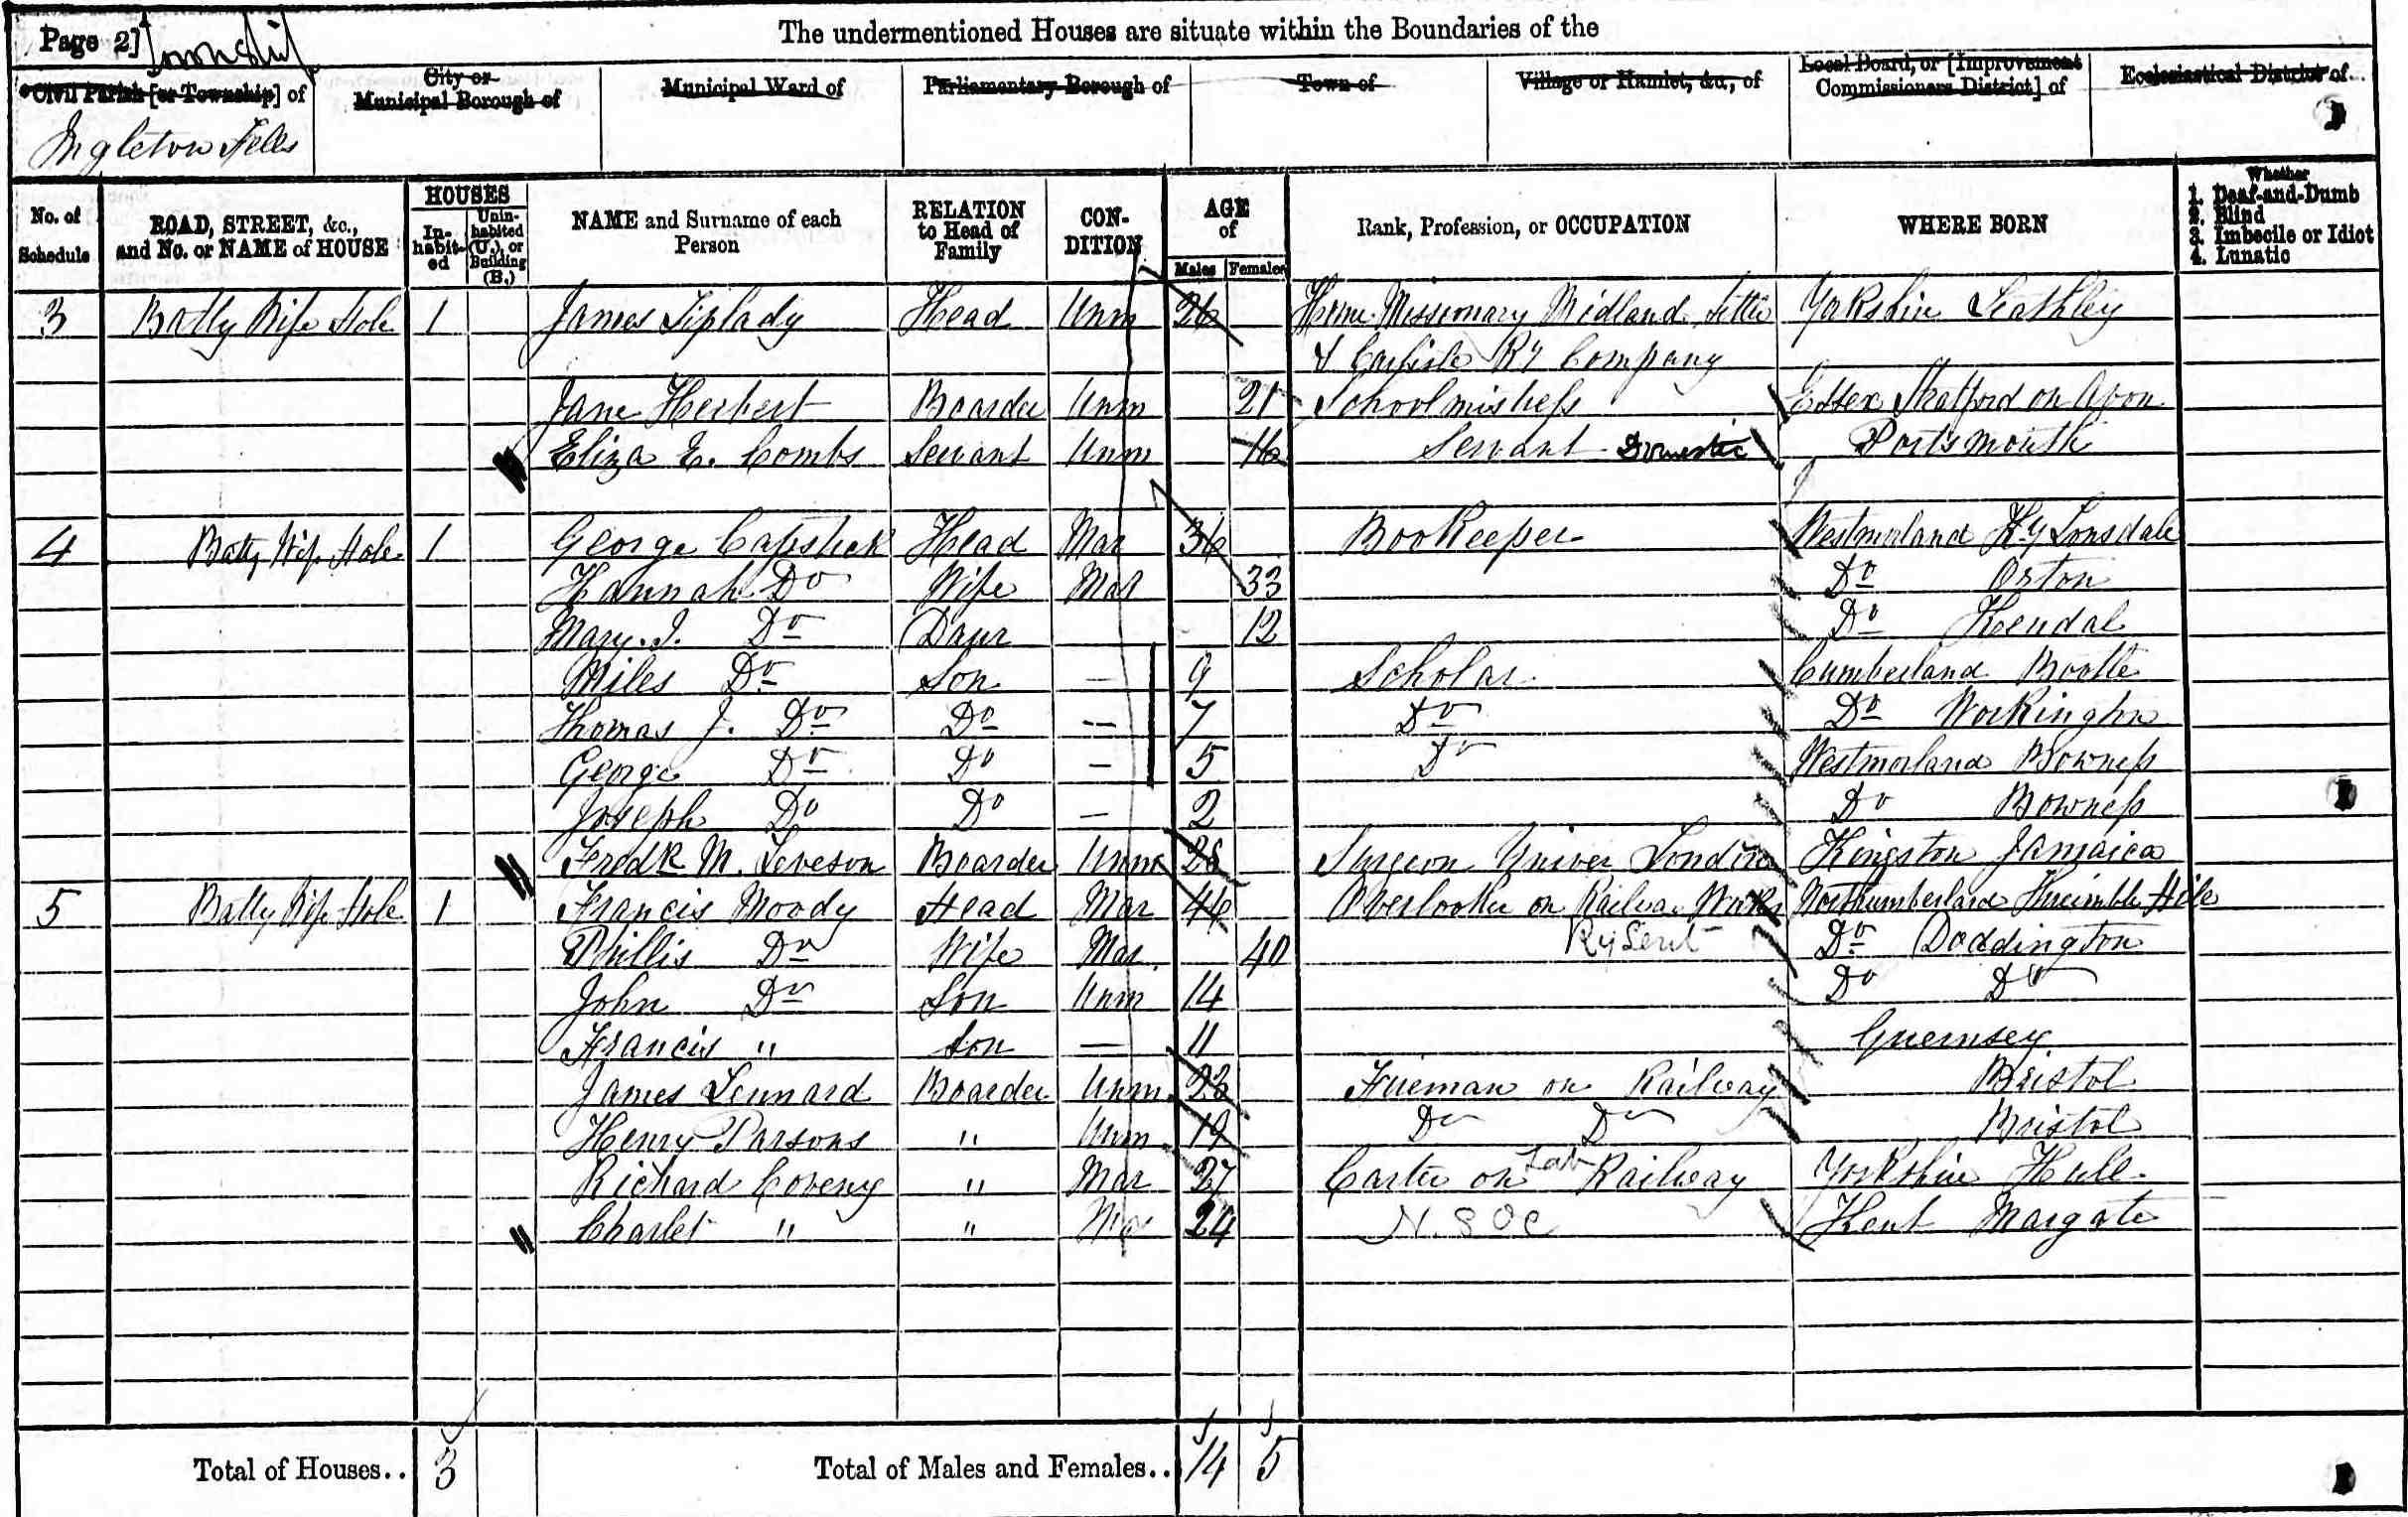 Page 2] Township
The undermentioned Houses are situate within the Boundaries of the
Civil Parish [or Township] of
City or Municipal Borough of
Municipal Ward of
Parliamentary Borough of
Town of
Village or Hamlet, &c., of
Local Board, or [Improvement Commissioners District] of
Ecclesiastical District of
Ingleton Fells
No. of Schedule
ROAD, STREET, &c., and No. or NAME of HOUSE
HOUSES
Inhabited
Uninhabited (U.), or Building (B.)
NAME and Surname of each Person
RELATION to Head of Family
CONDITION
AGE of
Males Females
Rank, Profession, or OCCUPATION
WHERE BORN
Whether
1. Deaf-and-Dumb
2. Blind
3. Imbecile or Idiot
4. Lunatic
3 Batty Wife Hole 1 James Tiplady Head Unm 26 Home Missionary Midland Settle Yorkshire Leathley
& Carlisle Ry Company
Jane Herbert Boarder Unm 21 Schoolmistress Essex Stratford on Avon
Eliza E. Combs Servant Unm 16 Servant Domestic Portsmouth
4 Batty Wife Hole 1 George Capstick Head Mar 36 Bookeeper Westmorland Ky Lonsdale
Hannah Do Wife Mar 33 Do Orton
Mary. I. Do Daur 12 Do Kendal
Miles Do Son – 9 Scholar Cumberland Bootle
Thomas J. Do Do – 7 Do Do Workington
George Do Do – 5 Do Westmorland Bowness
Joseph Do Do – 2 Do Bowness
Fredk M. Leveson Boarder Unm 28 Surgeon Univer London Kingston Jamaica
5 Batty Wife Hole 1 Francis Moody Head Mar 46 Overlooker on Railway Works Northumberland
Phillis Do Wife Mar. 40 Ry Servt Do Doddington
John Do Son Unm 14 Do Do
Francis " Son – 11 Guernsey
James Lennard Boarder Unm 23 Fireman on Railway Bristol
Henry Parsons " Unm 19 Do Do Bristol
Richard Coveny " Mar 27 Carter on Railway Lab Yorkshire Hull
Charlet " " Mar 24 Kent Margate
Total of Houses.. 3 Total of Males and Females.. 14 5